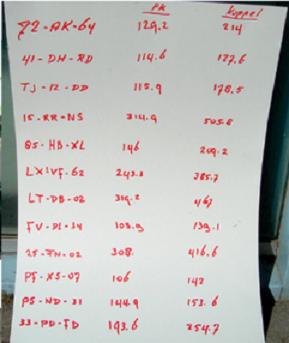 PK Koppel
72-AK-64 129.2 214
41-DH-RD 114.6 127.6
TJ-12-DD 115.9 178.5
15-RR-NS 314.9 505.8
85-HB-XL 146 209.2
LX-VF-62 243.8 385.7
LT-DB-02 319.2 467
FV-DL-34 108.9 139.1
25-FN-02 308. 416.6
PF-XS-07 106 142
PS-ND-31 144.9 153.6
33-PD-FD 193.6 254.7